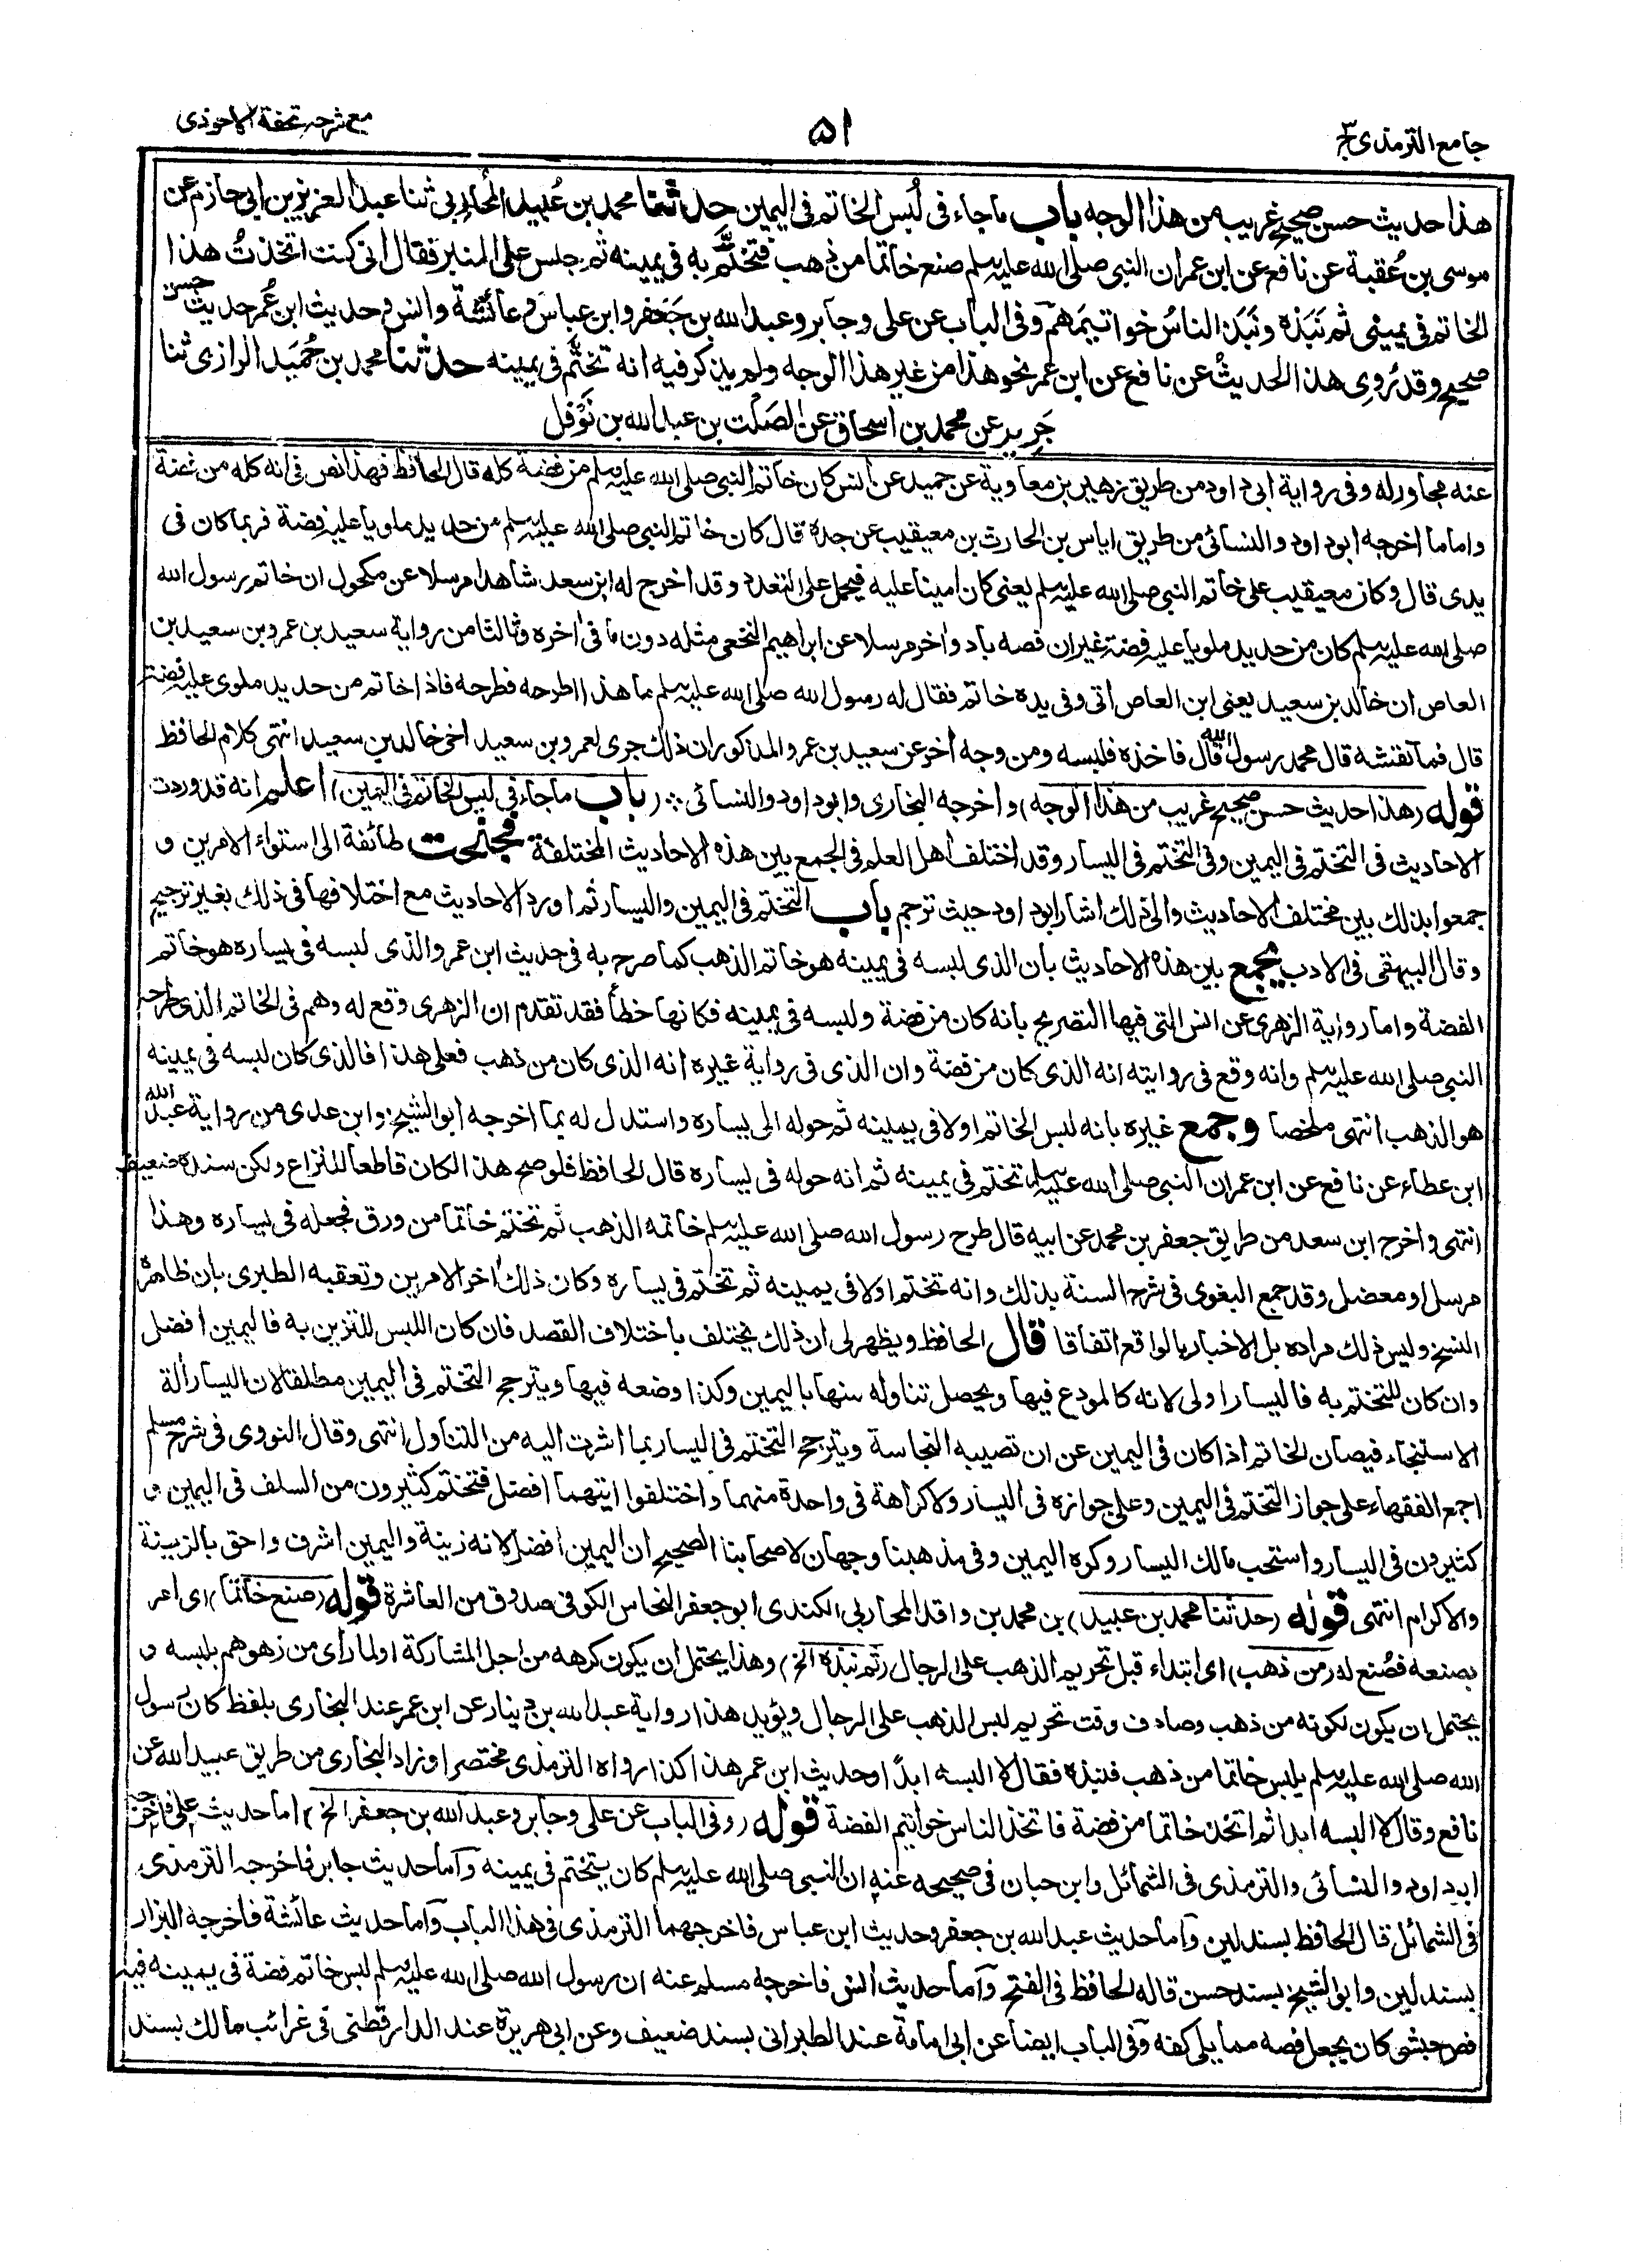 جامع الترمذي ج٣
۵۱
مع شرحه تحفة الاحوذي
هذا حديث حسن صحيح غريب من هذا الوجه باب ما جاء في لُبس الخاتم في اليمين حدثنا محمد بن عُبيد المُحاربي ثنا عبد العزيز بن ابي حازم عن
موسى بن عُقبة عن نافع عن ابن عمر ان النبي صلى الله عليه وسلم صنع خاتما من ذهب فتختّم به في يمينه ثم جلس على المنبر فقال اني كنت اتخذتُ هذا
الخاتم في يميني ثم نَبَذه ونَبَذ الناسُ خواتيمَهم وفي الباب عن علي وجابر وعبد الله بن جَعفر وابن عباس وعائشة وانس وحديث ابن عُمر حديث حسن
صحيح وقد رُوي هذا الحديث عن نافع عن ابن عمر نحو هذا من غير هذا الوجه ولم يذكر فيه انه تختّم في يمينه حدثنا محمد بن حُمَيد الرازي ثنا
جَرير عن محمد بن اسحاق عن الصَلت بن عبد الله بن نَوفل
عنه مجاور له وفي رواية ابي داود من طريق زهير بن معاوية عن حميد عن انس كان خاتم النبي صلى الله عليه وسلم من فضة كله قال الحافظ فهذا نص في انه كله من فضة
واما ما اخرجه ابو داود والنسائي من طريق اياس بن الحارث بن معيقيب عن جده قال كان خاتم النبي صلى الله عليه وسلم من حديد ملويا عليه فضة فربما كان في
يدي قال وكان معيقيب على خاتم النبي صلى الله عليه وسلم يعني كان امينا عليه فيحمل على التعدد وقد اخرج له ابن سعد شاهدا مرسلا عن مكحول ان خاتم رسول الله
صلى الله عليه وسلم كان من حديد ملويا عليه فضة غير ان فصه باد واخر مرسلا عن ابراهيم النخعي مثله دون ما في اخره وثالثا من رواية سعيد بن عمرو بن سعيد بن
العاص ان خالد بن سعيد يعني ابن العاص اتى وفي يده خاتم فقال له رسول الله صلى الله عليه وسلم ما هذا اطرحه فطرحه فاذا خاتم من حديد ملوي عليه فضة
قال فما نقشه قال محمد رسول الله قال فاخذه فلبسه ومن وجه اخر عن سعيد بن عمرو المذكور ان ذلك جرى لعمرو بن سعيد اخي خالد بن سعيد انتهى كلام الحافظ
قوله (هذا حديث حسن صحيح غريب من هذا الوجه) واخرجه البخاري وابو داود والنسائي ؞ (باب ما جاء في لبس الخاتم في اليمين) اعلم انه قد وردت
الاحاديث في التختم في اليمين وفي التختم في اليسار وقد اختلف اهل العلم في الجمع بين هذه الاحاديث المختلفة فجنحت طائفة الى استواء الامرين و
جمعوا بذلك بين مختلف الاحاديث والى ذلك اشار ابو داود حيث ترجم باب التختم في اليمين واليسار ثم اورد الاحاديث مع اختلافها في ذلك بغير ترجيح
وقال البيهقي في الادب يجمع بين هذه الاحاديث بان الذي لبسه في يمينه هو خاتم الذهب كما صرح به في حديث ابن عمر والذي لبسه في يساره هو خاتم
الفضة واما رواية الزهري عن انس التي فيها التصريح بانه كان من فضة ولبسه في يمينه فكانها خطأ فقد تقدم ان الزهري وقع له وهم في الخاتم الذي طرحه
النبي صلى الله عليه وسلم وانه وقع في روايته انه الذي كان من فضة وان الذي في رواية غيره انه الذي كان من ذهب فعلى هذا فالذي كان لبسه في يمينه
هو الذهب انتهى ملخصا وجمع غيره بانه لبس الخاتم اولا في يمينه ثم حوله الى يساره واستدل له بما اخرجه ابو الشيخ وابن عدي من رواية عبد الله
ابن عطاء عن نافع عن ابن عمر ان النبي صلى الله عليه وسلم تختم في يمينه ثم انه حوله في يساره قال الحافظ فلو صح هذا لكان قاطعا للنزاع ولكن سنده ضعيف
انتهى واخرج ابن سعد من طريق جعفر بن محمد عن ابيه قال طرح رسول الله صلى الله عليه وسلم خاتمه الذهب ثم تختم خاتما من ورق فجعله في يساره وهذا
مرسل او معضل وقد جمع البغوي في شرح السنة بذلك وانه تختم اولا في يمينه ثم تختم في يساره وكان ذلك اخر الامرين وتعقبه الطبري بان ظاهره
النسخ وليس ذلك مراده بل الاخبار بالواقع اتفاقا قال الحافظ ويظهر لي ان ذلك يختلف باختلاف القصد فان كان اللبس للتزين به فاليمين افضل
وان كان للتختم به فاليسار اولى لانه كالمودع فيها ويحصل تناوله منها باليمين وكذا وضعه فيها ويترجح التختم في اليمين مطلقا لان اليسار ألة
الاستنجاء فيصان الخاتم اذا كان في اليمين عن ان تصيبه النجاسة ويترجح التختم في اليسار بما اشرت اليه من التناول انتهى وقال النووي في شرح مسلم
اجمع الفقهاء على جواز التختم في اليمين وعلى جوازه في اليسار ولا كراهة في واحدة منهما واختلفوا ايتهما افضل فتختم كثيرون من السلف في اليمين و
كثيرون في اليسار واستحب مالك اليسار وكره اليمين وفي مذهبنا وجهان لاصحابنا الصحيح ان اليمين افضل لانه زينة واليمين اشرف واحق بالزينة
والاكرام انتهى قوله (حدثنا محمد بن عبيد) بن محمد بن واقد المحاربي الكندي ابو جعفر النخاس الكوفي صدوق من العاشرة قوله (صنع خاتما) اي امر
بصنعه فصُنع له (من ذهب) اي ابتداء قبل تحريم الذهب على الرجال (ثم نبذه الخ) وهذا يحتمل ان يكون كرهه من اجل المشاركة او لما رأى من زهوهم بلبسه و
يحتمل ان يكون لكونه من ذهب وصادف وقت تحريم لبس الذهب على الرجال ويؤيد هذا رواية عبد الله بن دينار عن ابن عمر عند البخاري بلفظ كان رسول
الله صلى الله عليه وسلم يلبس خاتما من ذهب فنبذه فقال لا البسه ابدًا وحديث ابن عمر هذا كذا رواه الترمذي مختصرا وزاد البخاري من طريق عبيد الله عن
نافع وقال لا البسه ابدا ثم اتخذ خاتما من فضة فاتخذ الناس خواتيم الفضة قوله (وفي الباب عن علي وجابر وعبد الله بن جعفر الخ) اما حديث علي فاخرجه
ابو داود والنسائي والترمذي في الشمائل وابن حبان في صحيحه عنه ان النبي صلى الله عليه وسلم كان يتختم في يمينه وأما حديث جابر فاخرجه الترمذي
في الشمائل قال الحافظ بسند لين وأما حديث عبد الله بن جعفر وحديث ابن عباس فاخرجهما الترمذي في هذا الباب وأما حديث عائشة فاخرجه البزار
بسند لين وابو الشيخ بسند حسن قاله الحافظ في الفتح وأما حديث انس فاخرجه مسلم عنه ان رسول الله صلى الله عليه وسلم لبس خاتم فضة في يمينه فيه
فص حبشي كان يجعل فصه مما يلي كفه وفي الباب ايضا عن ابي امامة عند الطبراني بسند ضعيف وعن ابي هريرة عند الدارقطني في غرائب مالك بسند